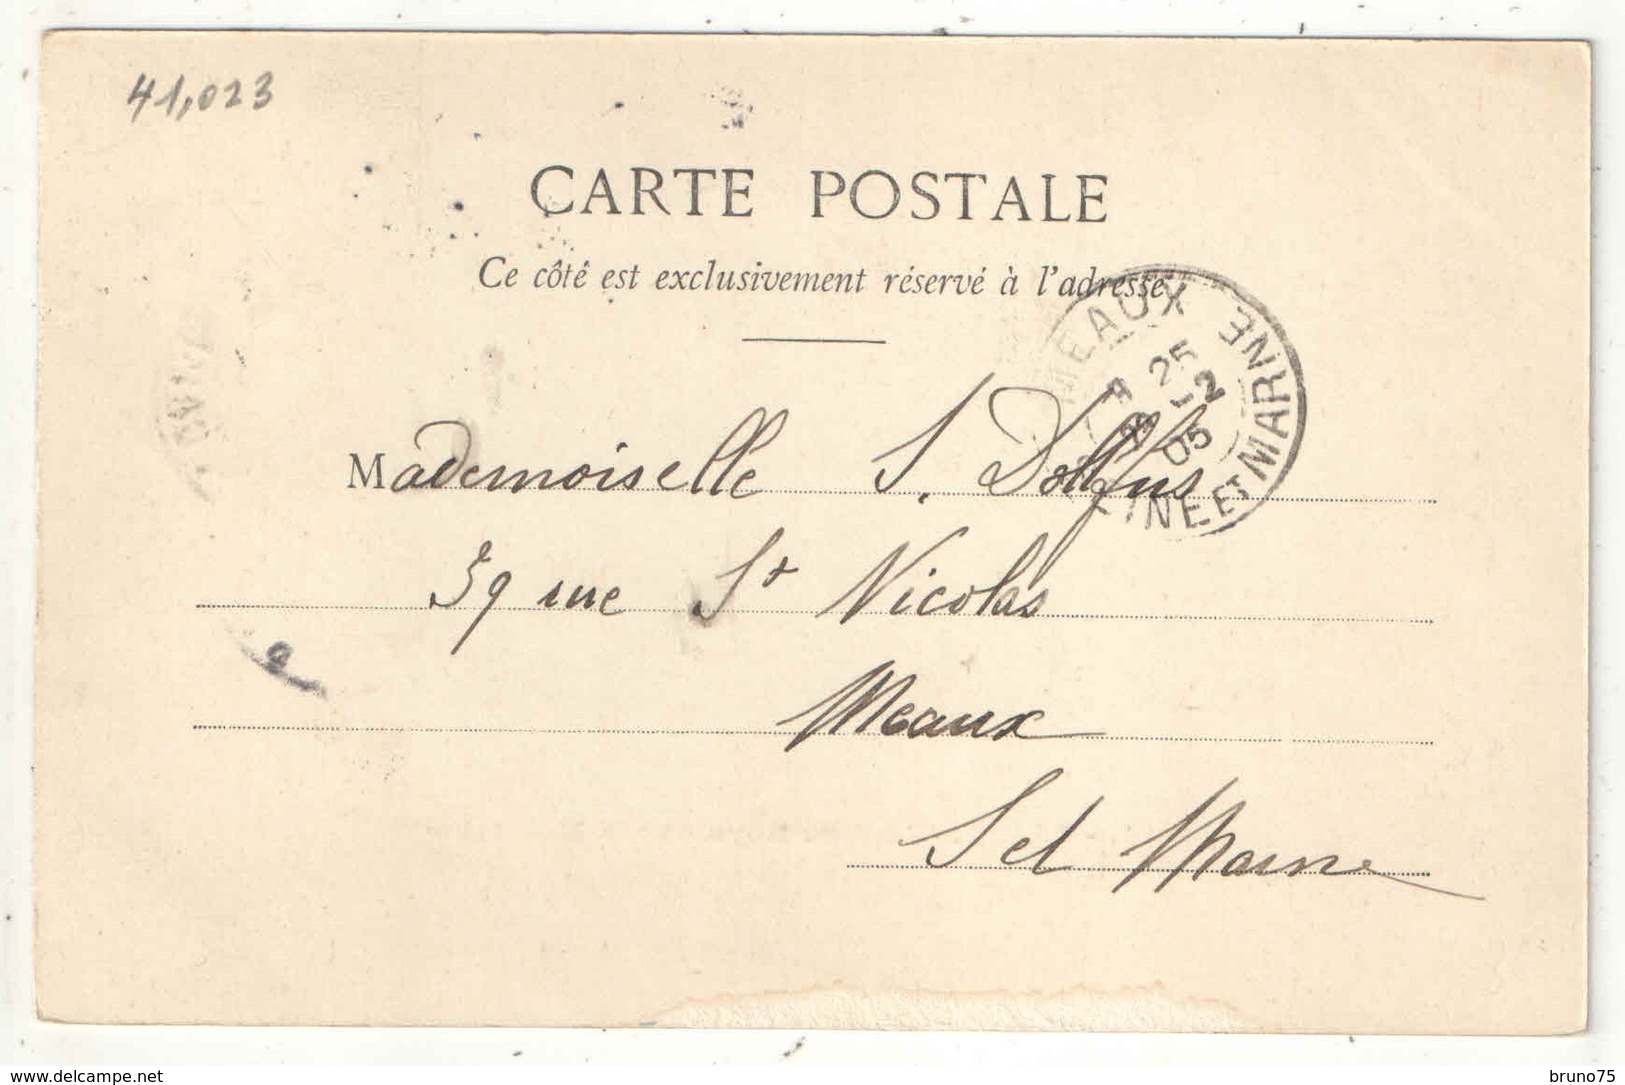 41,023
CARTE POSTALE
Ce côté est exclusivement réservé à l'adresse
MEAUX
25
-2
05
SEINE ET MARNE
Mademoiselle S. Dollfus
39 rue St Nicolas
Meaux
S et Marne
www.delcampe.net
bruno75